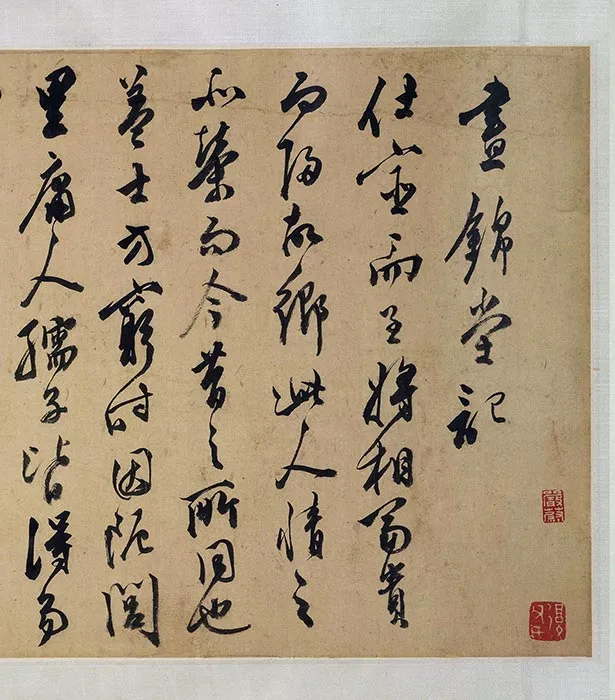 晝錦堂記
仕宦而至將相富貴
而歸故鄉此人情之
所榮而今昔之所同也
蓋士方窮時困阨閭
里庸人孺子皆得易